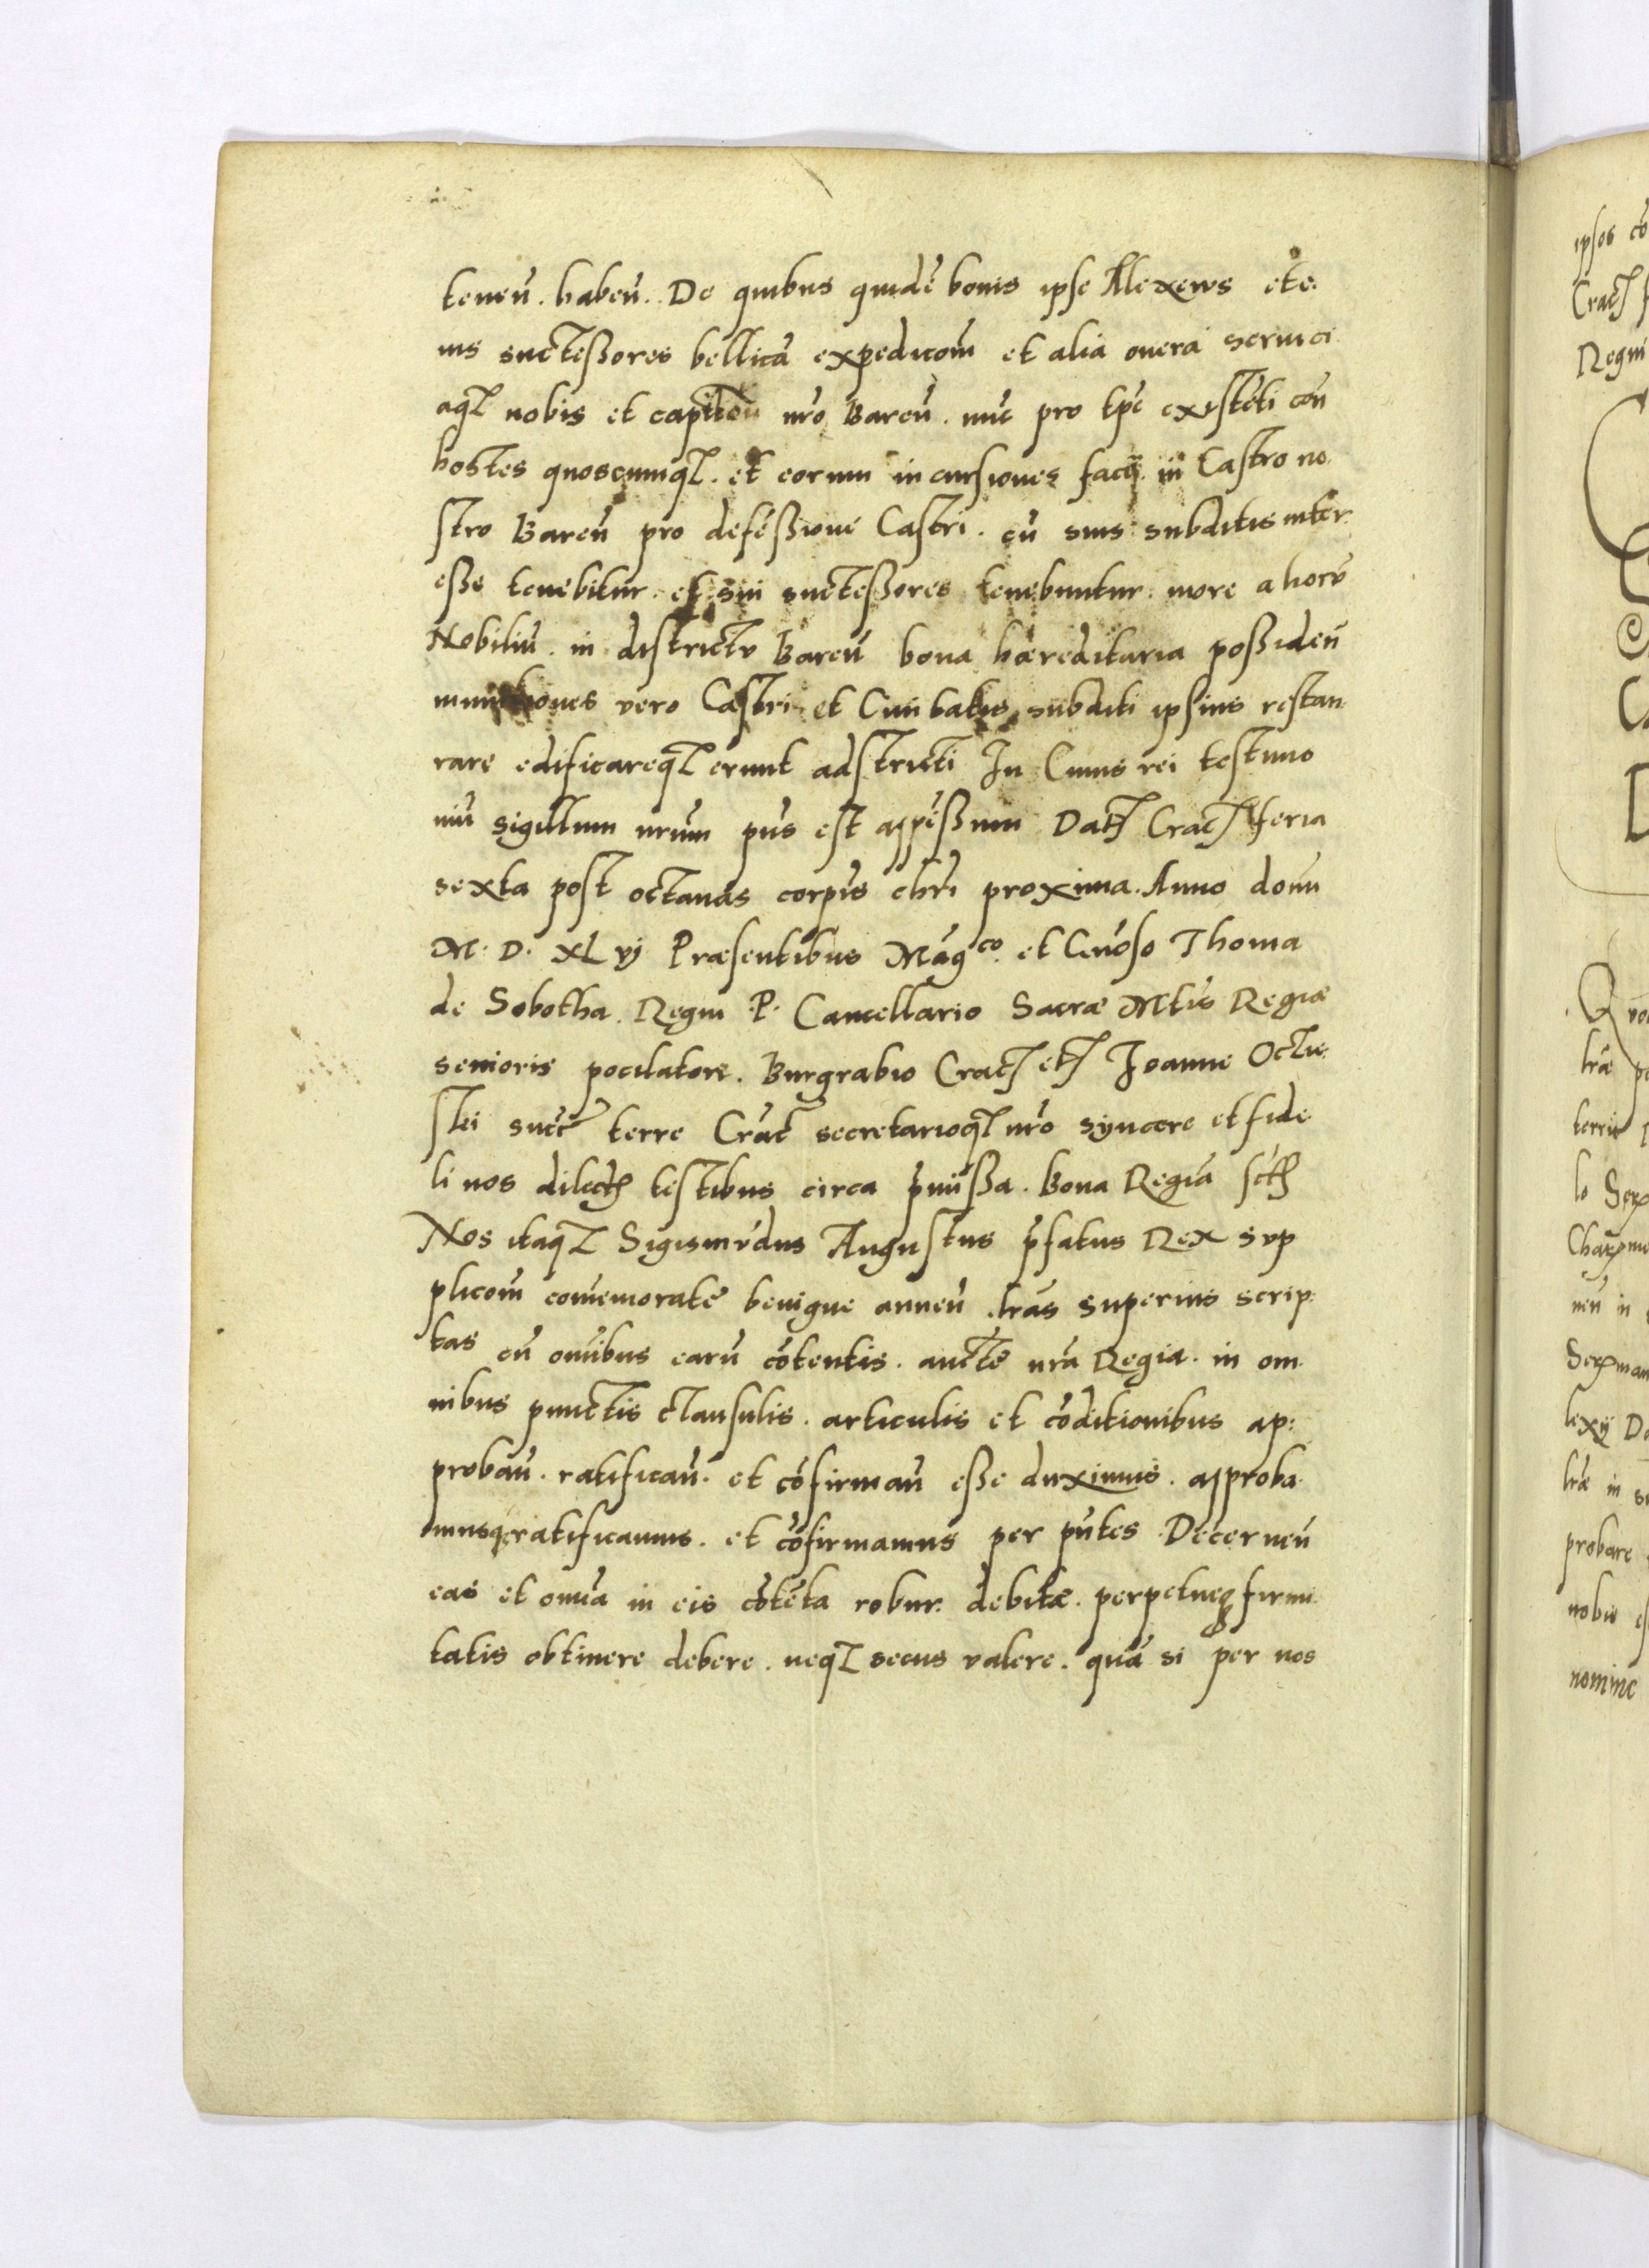 teneñ. habeñ. De quibus quidē bonis ipse Alexeius et e:
ius suctessores bellicā expeditoīm et alia onera servici
aq₃ nobis et capitōn nr̄o Bareñ. nūc pro tp̄e existēti cōn
hostes quoscumq₃. et eorum incursiones facq̄. in Castro no
stro Bareñ pro defēssione Castri. cū suis subditis inter
esse tenebitur. et sui suctessores tenebuntur. more alioru
Nobiliū. in districtu Bareñ bona hæreditaria possideñ
munitiones vero Castri et Civitatis subditi ipsius restau
rare edificareq₃ erunt adstricti In Cuius rei testimo
niū sigillum nrūm pn̄s est appēssum Datꝭ Cracꝭ feria
sexta post octavas corpis chri proxima. Anno domi
M. D. XL vj Præsentibus Mag.co et Genōso Thoma
de Sobotha. Regni P. Cancellario Sacræ Mtis Regiæ
senioris pocilatore. Burgrabio Cracꝭ etꝭ Joanne Octie
ski succ̄ terre Crac̄ secretarioq₃ nr̄o syncere et fide
li nos dilectꝭ testibus circa p̄missa. Bona Regiā sctꝭ
Nos itaq₃ Sigismūdus Augustus p̄fatus Rex sup
plicoīm comemorate benigne anneñ. lrās superius scrip:
tas cū omībus earū cōtentis. aucte nrā Regia. in om
nibus punctis clausulis. articulis et cōditionibus ap:
probañ. ratificañ. et cōfirmañ esse duximus. approba
musq₃ ratificamus. et cōfirmamus per pn̄tes Decerneñ
eas et omīa in eis cōtēta robur. debitæ. perpetueq₃ firmi
tatis obtinere debere. neq₃ secus valere. quā si per nos
ipsos cō
Cracꝭ
Regni
lræ
terris
probare
nobis
nomine